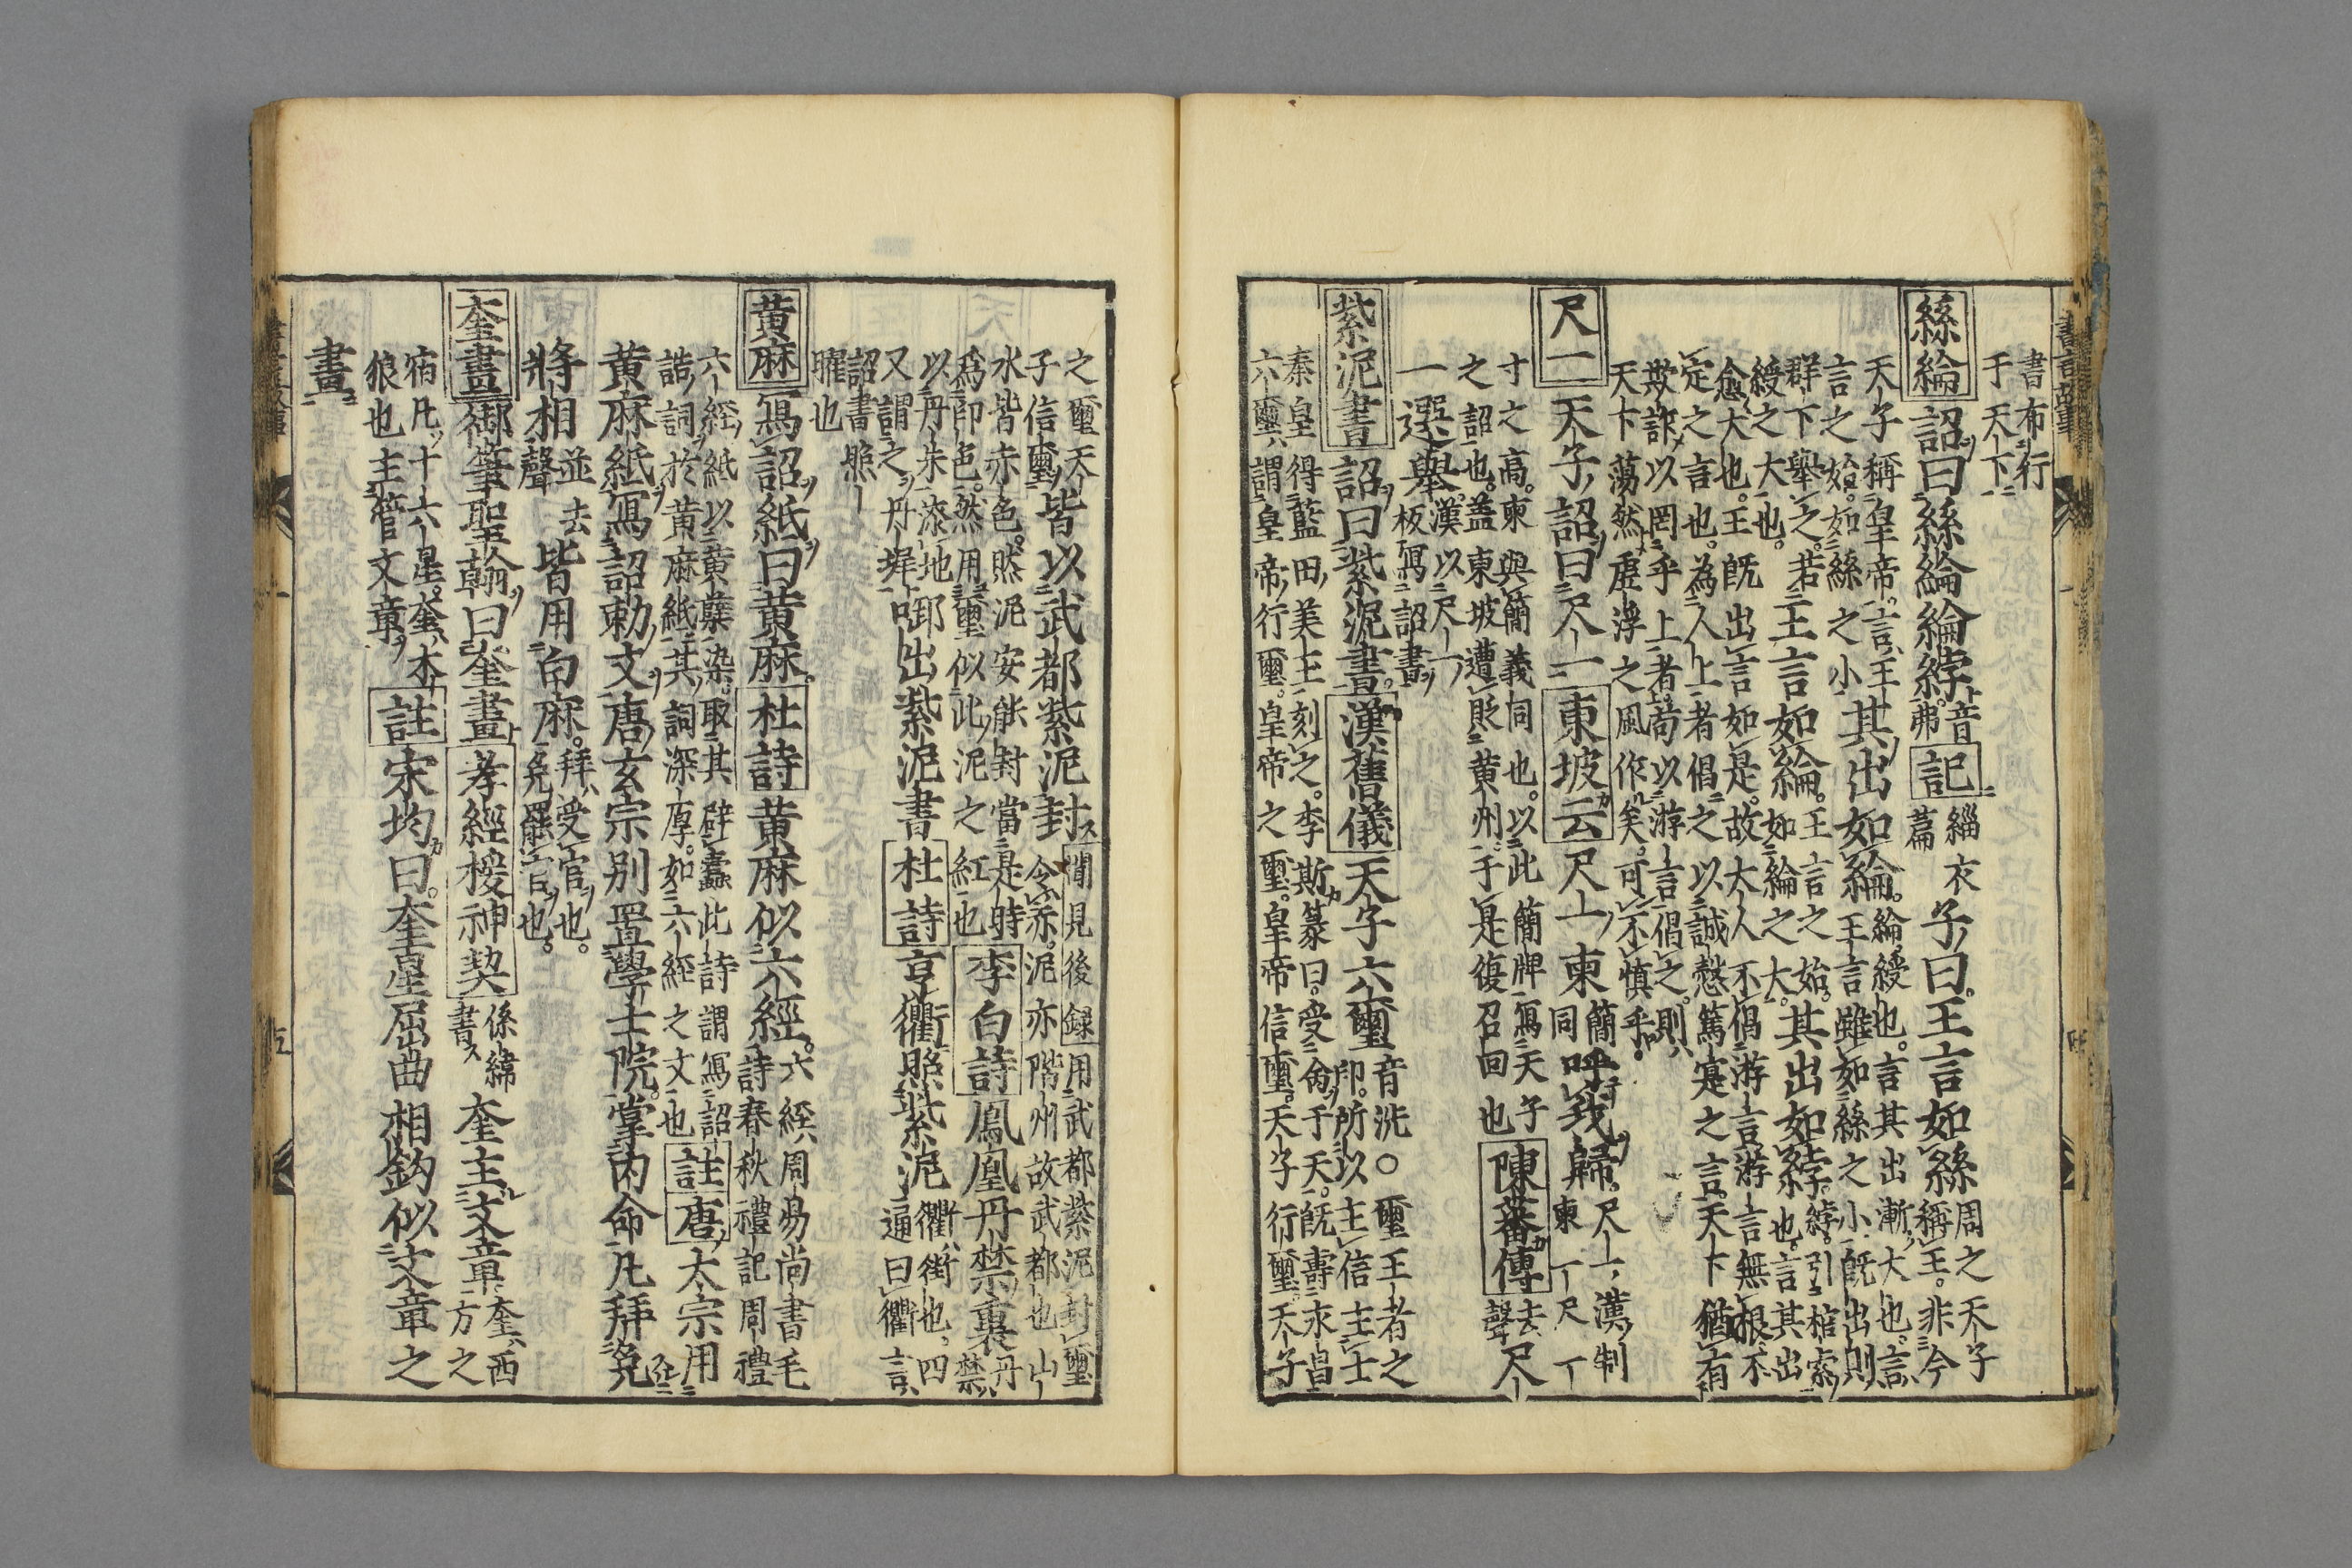 書布行
于天下
絲綸 詔曰絲綸綸綍音弗 記 緇衣篇 子曰王言如絲 周之天子稱王非今
天子稱皇帝言王言之始如絲之小 其出如綸 綸綬也言其出漸大也言王言雖如絲之小既出則
群下舉之若綬之大也 王言如綸 王言之始如綸之大 其出如綍 綍引棺索也言其出
愈大也王既出言如是故大人不倡游言游言無根不
定之言也為人上者倡之以誠愨篤寔之言天下猶有
欺詐以罔乎上者苟以游言倡之則
天下蕩然虛浮之風作矣可不慎乎
尺一 天子詔曰尺一 東坡云 尺一東呼我歸 尺一漢制
寸之高東與簡義同也以此簡牌寫天子
之詔也蓋東坡遭貶黃州于是復召回也 陳蕃傳 去聲 尺
一選舉 漢以尺一板寫詔書
紫泥書 詔曰紫泥書 漢舊儀 天子六璽 音洗○璽王者之印所以主信主士
秦皇得藍田美玉刻之李斯篆曰受命于天既壽永昌
六璽謂皇帝行璽皇帝之璽皇帝信璽天子行璽天子
之璽天子信璽 皆以武都紫泥封 聞見後録用武都紫泥封璽今亦泥亦階州故武都也山
水皆赤色然泥安能封當是時
為印色然用璽似此泥之紅也 李白詩 鳳凰丹禁裏 丹禁
以丹朱漆地
又謂之丹墀 啣出紫泥書 杜詩 享衢照紫泥 衢街也四遍曰衢言
詔書照
曜也
黃麻 寫詔紙曰黃麻 杜詩 黃麻似六經 六經周易尚書毛詩春秋禮記周禮
六經紙以黃蘗染取其辟蠹此詩謂寫詔
誥詞於黃麻紙其詞深厚如六經之文也 註 唐太宗用
黃麻紙寫詔勅文唐玄宗別置學士院掌內命凡拜免
將相 並去聲 皆用白麻 拜受官也免罷官也
奎畫 御筆聖翰曰奎畫 孝經援神契 係緯書 奎主文章 奎西方之
宿凡十六星奎本
狼也主管文章 註 宋均曰奎星屈曲相鈎似文章之
畫